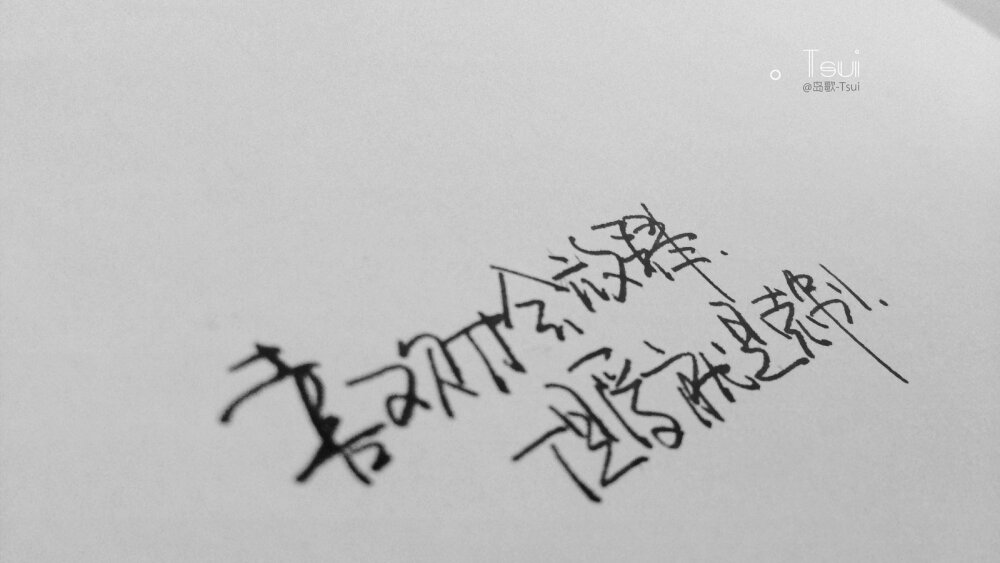 Tsui
@岛歌-Tsui
喜欢时会放肆.
但爱就是克制.